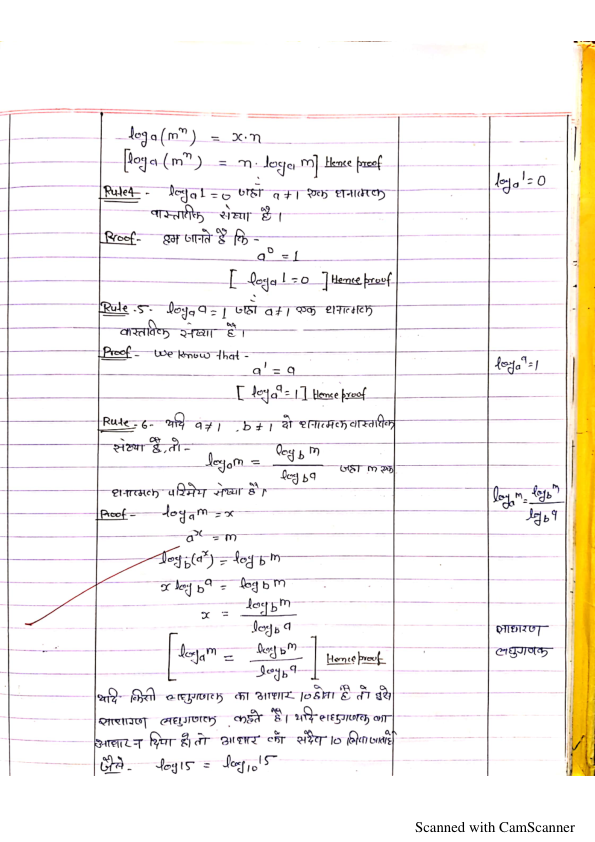 logₐ(mⁿ) = x·n
[logₐ(mⁿ) = n·logₐ m] Hence proof
logₐ1 = 0
Rule4 - logₐ1 = 0 जहाँ a≠1 एक धनात्मक
वास्तविक संख्या है।
Proof- हम जानते है कि -
a⁰ = 1
[ logₐ1 = 0 ] Hence proof
Rule -5- logₐa = 1 जहाँ a≠1 एक धनात्मक
वास्तविक संख्या है।
Proof- we know that -
logₐa = 1
a¹ = a
[ logₐa = 1 ] Hence proof
Rule -6- यदि a≠1 , b≠1 दो धनात्मक वास्तविक
संख्या है, तो - logₐm = log_b m / log_b a जहाँ m एक
धनात्मक परिमेय संख्या है।
logₐm = log_b m / log_b a
Proof- logₐm = x
aˣ = m
log_b(aˣ) = log_b m
x log_b a = log_b m
x = log_b m / log_b a
साधारण
लघुगणक
[ logₐm = log_b m / log_b a ] Hence proof
यदि किसी लघुगणक का आधार 10 होता है तो इसे
साधारण लघुगणक कहते है। यदि लघुगणक का
आधार न दिया हो तो आधार को सदैव 10 लिया जाता है
जैसे- log15 = log₁₀15
Scanned with CamScanner